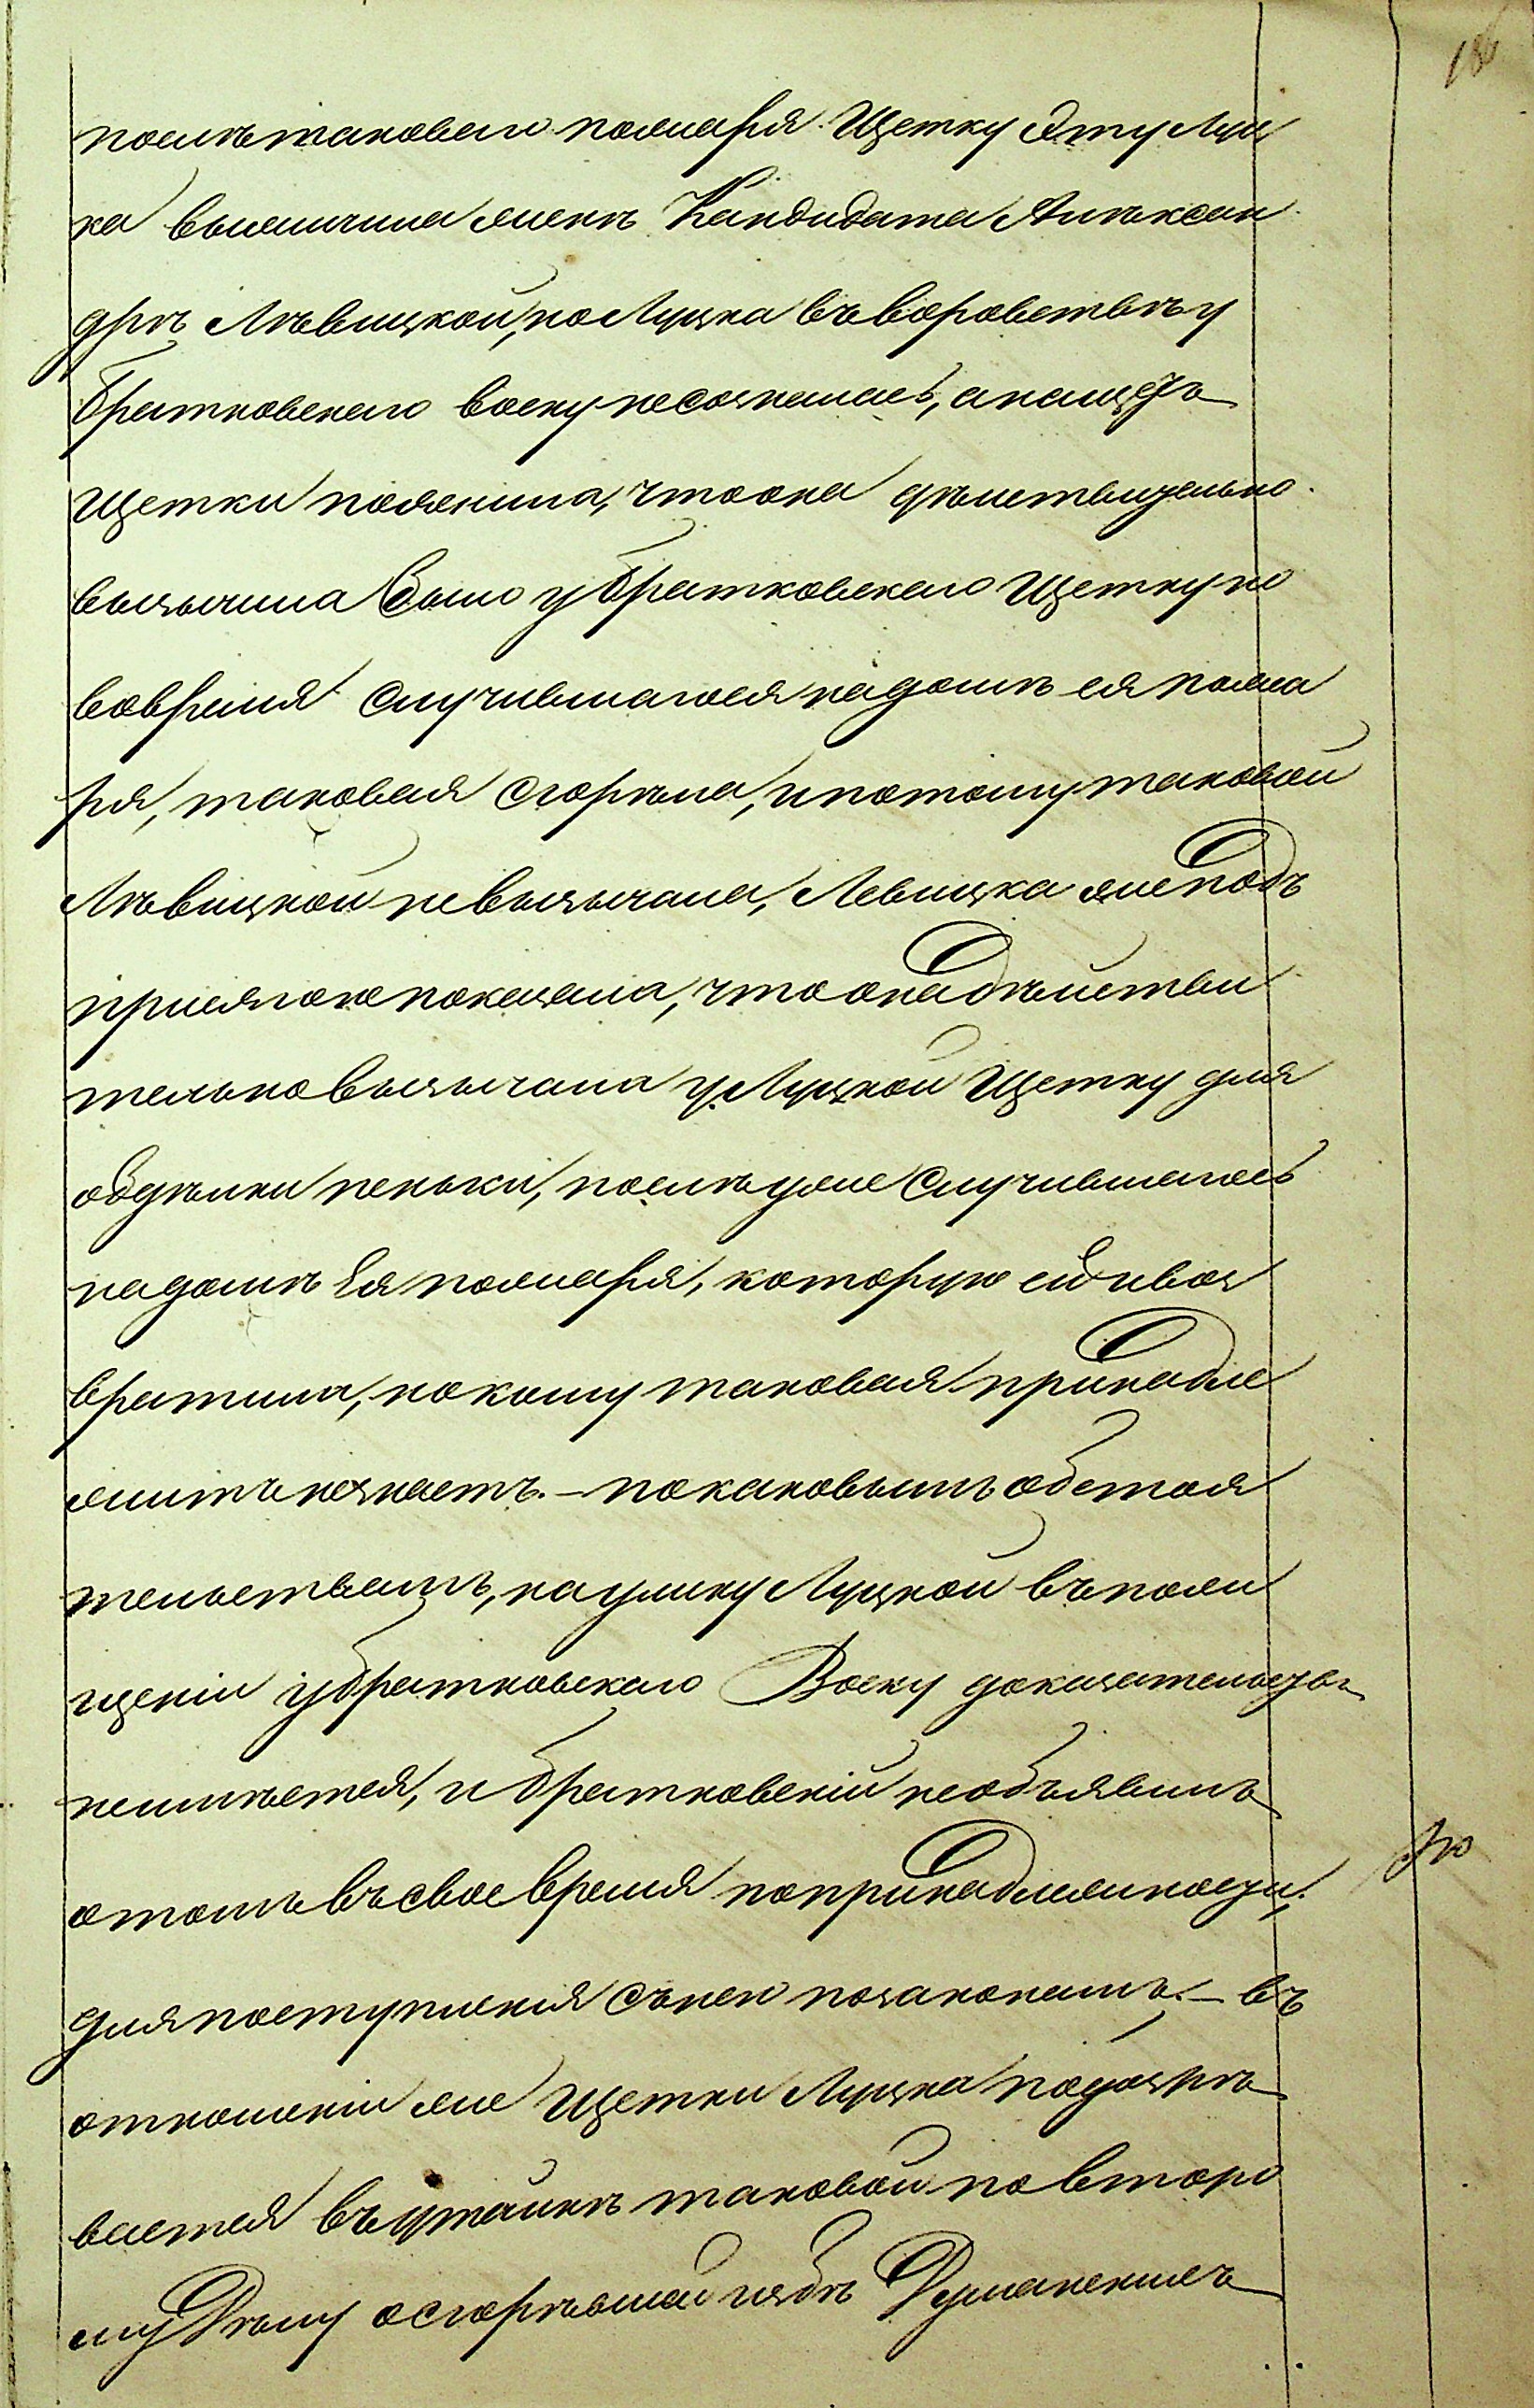 186
послѣ таковаго пожара Щетку эту Луц
ка вызычила женѣ Кандидата Алѣксан
дрѣ Лѣвицкой, но Луцка въ воровствѣ у
Братковскаго воску несозналась, а насщетъ
Щетки пояснила, что она дѣйствительно
вызычила было у Братковскаго Щетку но
вовремя случившагося надомъ ея пожа
ра, таковая сгорѣла, и потому таковой
Лѣвицкой невызычала, Левицка же подъ
присягою показала, что она дѣйстви
тельно вызычала у Луцкой Щетку для
обдѣлки пеньки, послѣ уже случившагось
надомъ Ея пожара, которую ей и воз
вратила, но кому таковая принадле
житъ незнаетъ. – по каковымъ обстоя
тельствамъ, на улику Луцкой въ похи
щеніи у Братковскаго Воску доказательствъ
неимѣется, и Братковскій необъявилъ
о томъ въ свое время по принадлежности,
для поступленія съ нею по законамъ. – въ
отношеніи же Щетки Луцка подозрѣ
вается въ утайкѣ таковой по второ
му Дѣлу о сгорѣвшей избѣ Думанскихъ